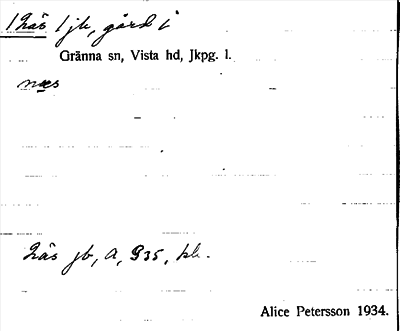 1 Näs 1 jb, gård i
Gränna sn, Vista hd, Jkpg. l.
næs
Näs jb, A, 935, hk.
Alice Petersson 1934.